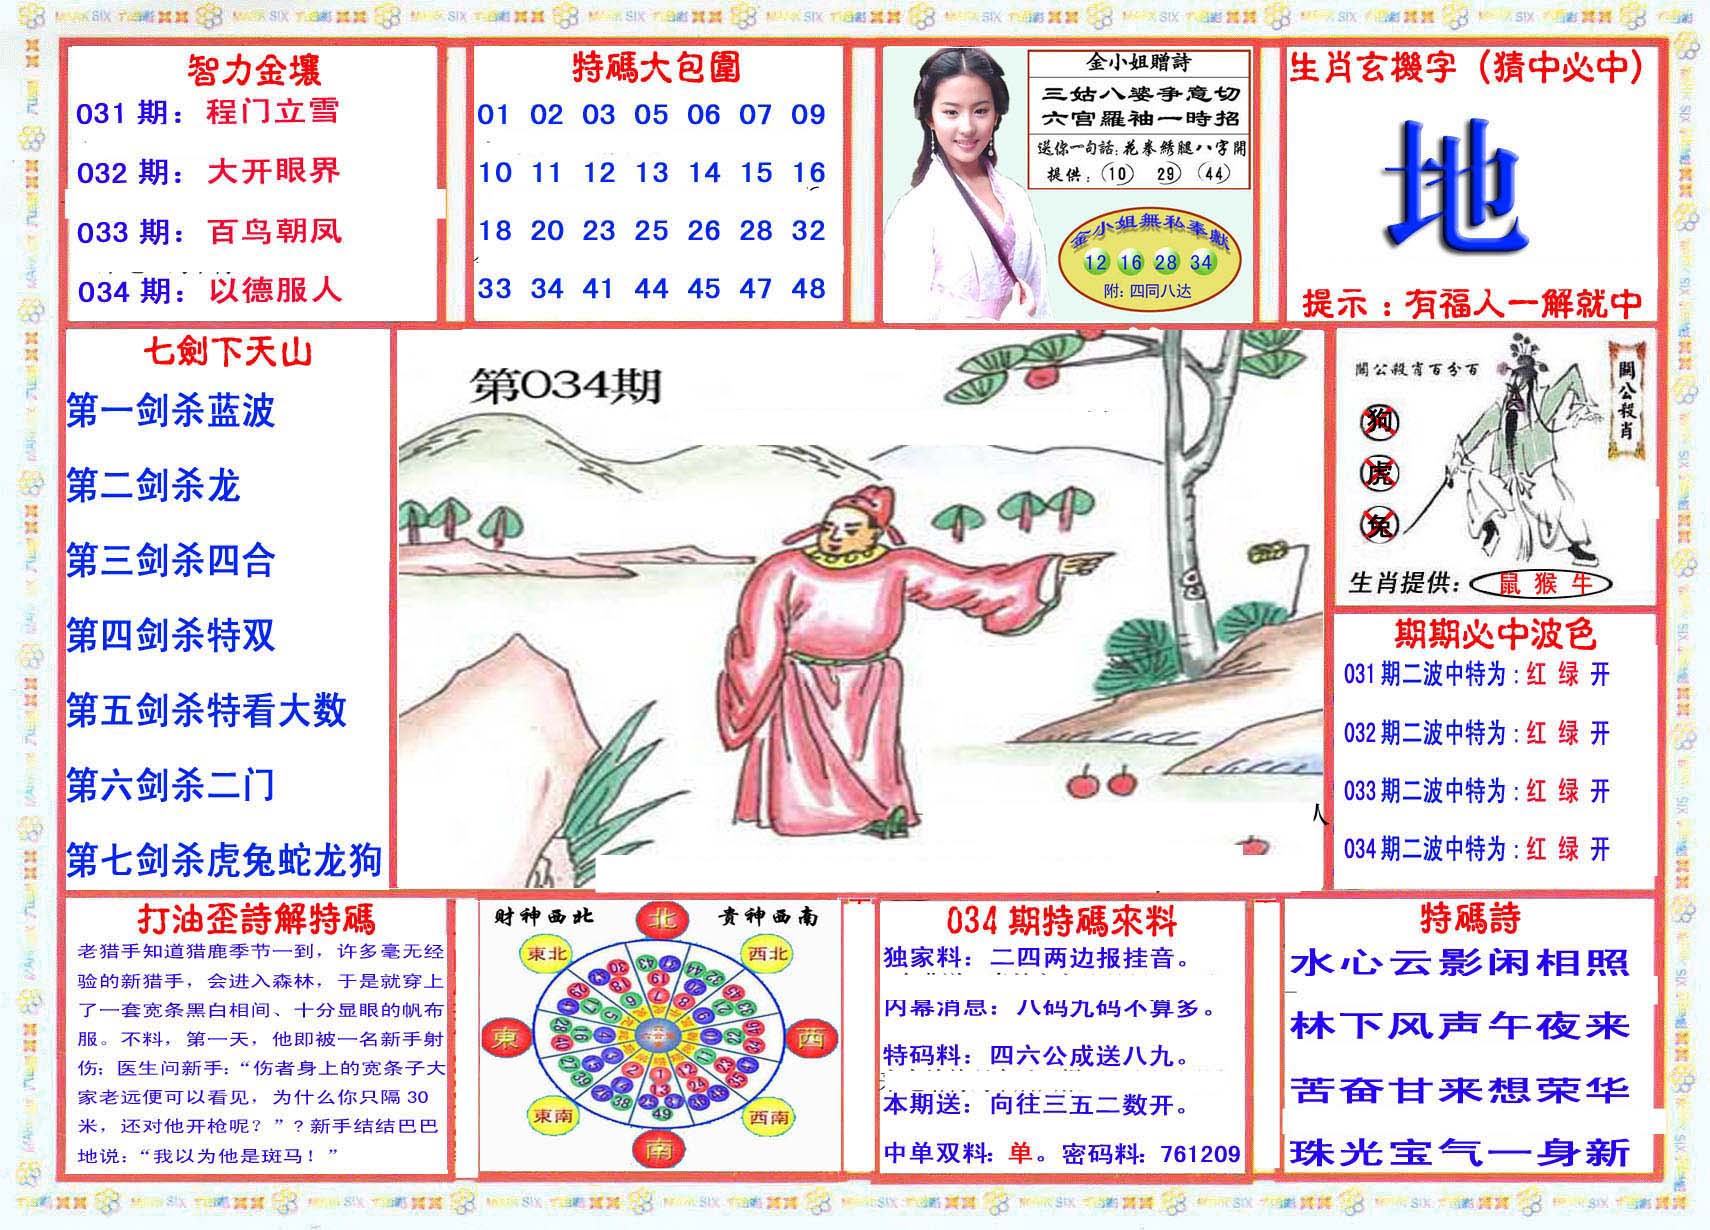 智力金壤
031期：程门立雪
032期：大开眼界
033期：百鸟朝凤
034期：以德服人
特碼大包圍
01 02 03 05 06 07 09
10 11 12 13 14 15 16
18 20 23 25 26 28 32
33 34 41 44 45 47 48
金小姐贈詩
三姑八婆爭意切
六宫羅袖一時招
送你一句話：花拳綉腿八字開
提供：(10) 29) (44)
金小姐無私奉獻
12 16 28 34
附：四同八达
生肖玄機字（猜中必中）
地
提示：有福人一解就中
七劍下天山
第一剑杀蓝波
第二剑杀龙
第三剑杀四合
第四剑杀特双
第五剑杀特看大数
第六剑杀二门
第七剑杀虎兔蛇龙狗
第034期
人
關公殺肖百分百
關公殺肖
狗
虎
兔
生肖提供：鼠 猴 牛
期期必中波色
031期二波中特为：红 绿 开
032期二波中特为：红 绿 开
033期二波中特为：红 绿 开
034期二波中特为：红 绿 开
打油歪詩解特碼
老猎手知道猎鹿季节一到，许多毫无经
验的新猎手，会进入森林，于是就穿上
了一套宽条黑白相间、十分显眼的帆布
服。不料，第一天，他即被一名新手射
伤；医生问新手：“伤者身上的宽条子大
家老远便可以看见，为什么你只隔 30
米，还对他开枪呢？”？新手结结巴巴
地说：“我以为他是斑马！”
財神西北
貴神西南
北
東北
西北
東
西
東南
西南
南
034期特碼來料
独家料：二四两边报挂音。
内幕消息：八码九码不算多。
特码料：四六公成送八九。
本期送：向往三五二数开。
中单双料：单。密码料：761209
特碼詩
水心云影闲相照
林下风声午夜来
苦奋甘来想荣华
珠光宝气一身新